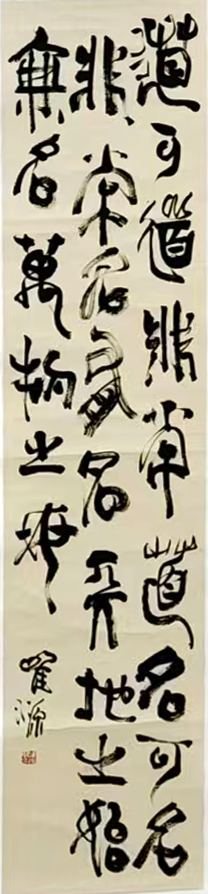 道可道非常道名可名
非常名有名天地之始
無名萬物之母